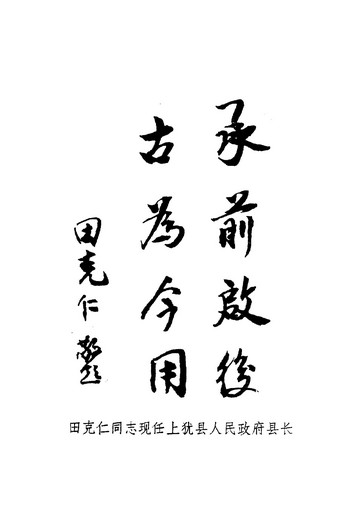 承前啟後
古為今用
田克仁敬题
田克仁同志现任上犹县人民政府县长